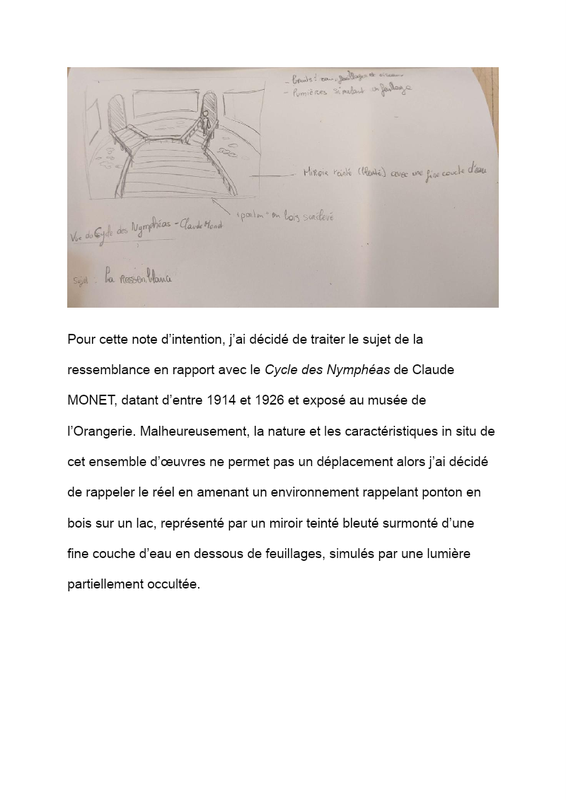 - Bruits d'eau, feuillages
- Lumières simulant un feuillage
Miroir teinté (bleuté) avec une fine couche d'eau
"ponton" en bois surélevé
Vue du Cycle des Nymphéas - Claude Monet
Sujet : La ressemblance
Pour cette note d’intention, j’ai décidé de traiter le sujet de la
ressemblance en rapport avec le Cycle des Nymphéas de Claude
MONET, datant d’entre 1914 et 1926 et exposé au musée de
l’Orangerie. Malheureusement, la nature et les caractéristiques in situ de
cet ensemble d’œuvres ne permet pas un déplacement alors j’ai décidé
de rappeler le réel en amenant un environnement rappelant ponton en
bois sur un lac, représenté par un miroir teinté bleuté surmonté d’une
fine couche d’eau en dessous de feuillages, simulés par une lumière
partiellement occultée.